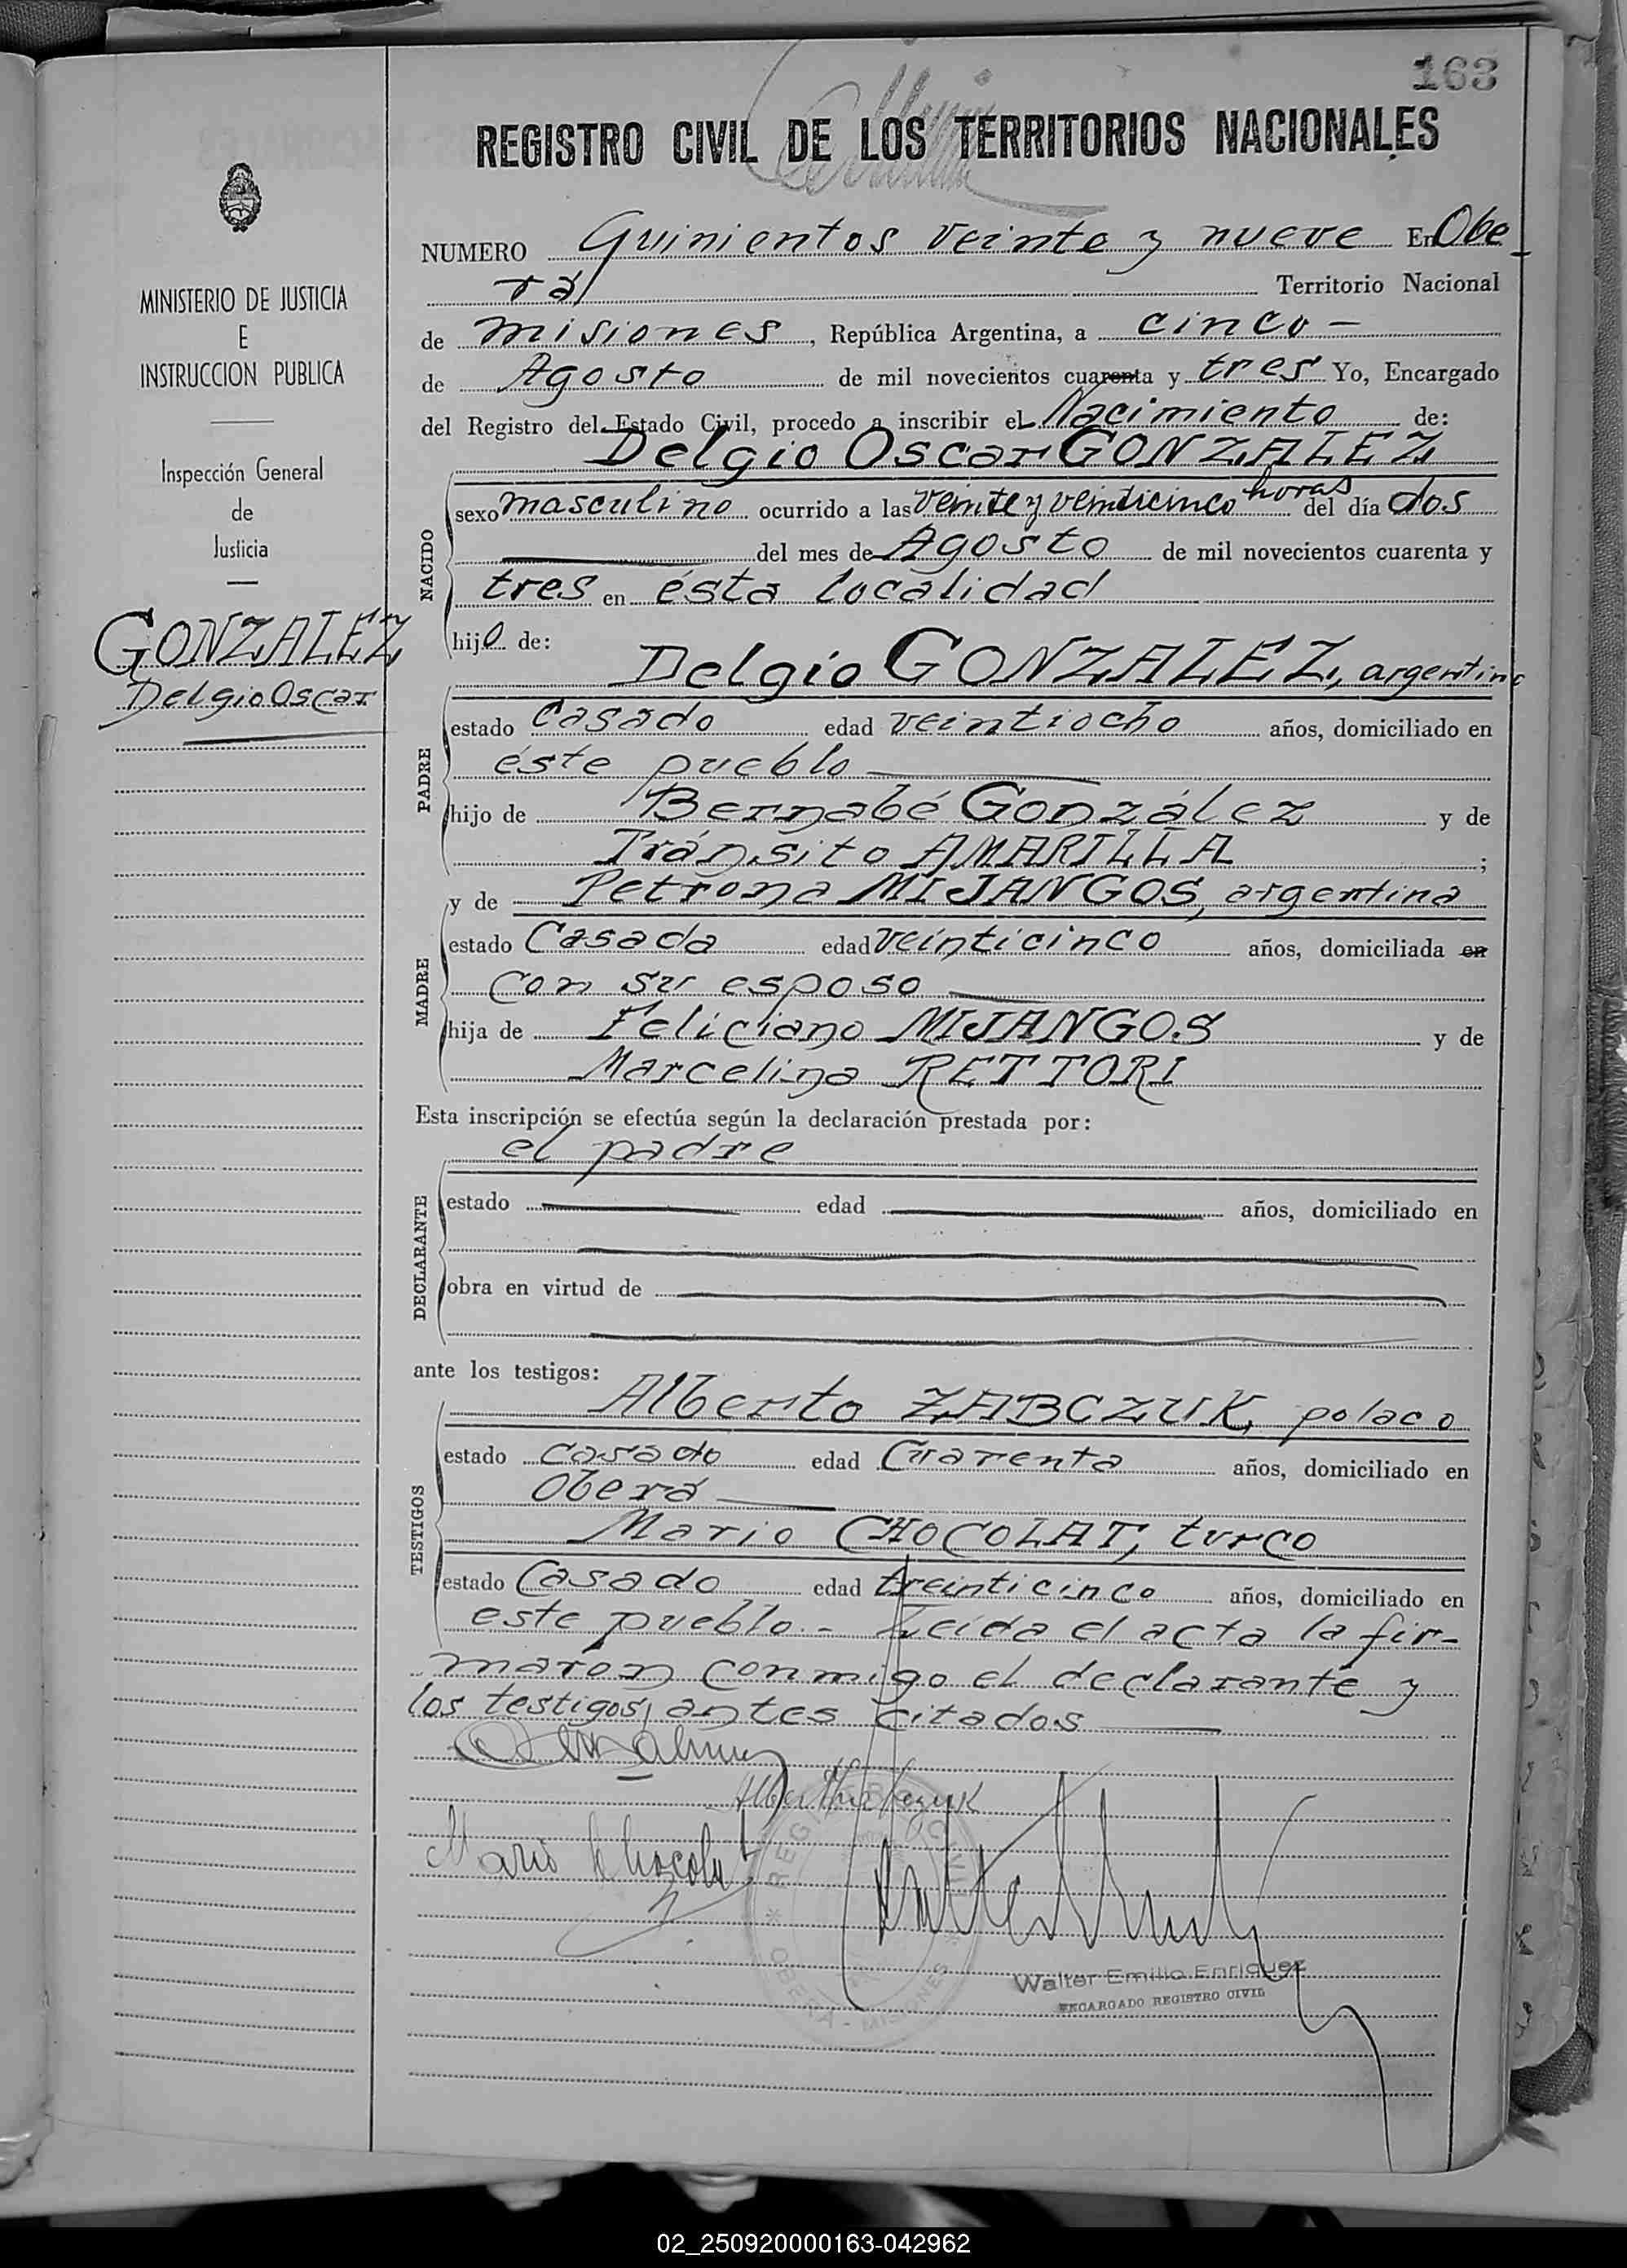 163
REGISTRO CIVIL DE LOS TERRITORIOS NACIONALES
MINISTERIO DE JUSTICIA
E
INSTRUCCION PUBLICA
Inspección General
de
Justicia
GONZALEZ
Delgio Oscar
NUMERO Quinientos veinte y nueve En Obe-
rá Territorio Nacional
de misiones, República Argentina, a cinco -
de Agosto de mil novecientos cuarenta y tres Yo, Encargado
del Registro del Estado Civil, procedo a inscribir el Nacimiento de:
Delgio Oscar GONZALEZ
NACIDO
sexo masculino ocurrido a las veinte y veinticinco horas del día dos
del mes de Agosto de mil novecientos cuarenta y
tres en ésta localidad
hijo de:
Delgio GONZALEZ, argentino
PADRE
estado Casado edad veintiocho años, domiciliado en
éste pueblo
hijo de Bernabé González y de
Tránsito AMARILLA ;
y de Petrona MIJANGOS, argentina
MADRE
estado Casada edad veinticinco años, domiciliada en
con su esposo
hija de Feliciano MIJANGOS y de
Marcelina RETTORI
Esta inscripción se efectúa según la declaración prestada por:
el padre
DECLARANTE
estado edad años, domiciliado en
obra en virtud de
ante los testigos:
Alberto ZABCZUK, polaco
TESTIGOS
estado casado edad Cuarenta años, domiciliado en
Oberá
Mario CHOCOLAT, turco
estado Casado edad treinticinco años, domiciliado en
este pueblo.- Leída el acta la fir-
maron conmigo el declarante y
los testigos antes citados
Mario Chocolat
REGISTRO CIVIL
OBERA - MISIONES
Walter Emilio Enriquez
ENCARGADO REGISTRO CIVIL
02_250920000163-042962